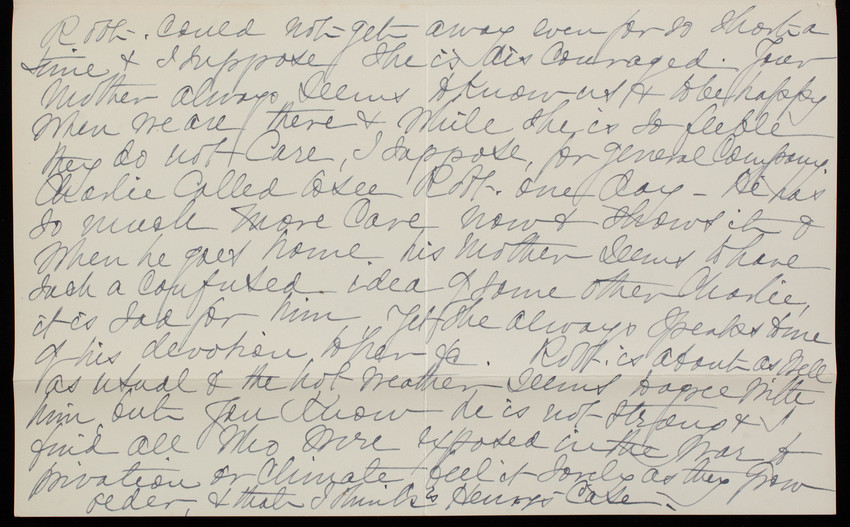 Robt. could not get away even for so short a
time & I suppose she is discouraged. Your
Mother always seems to know us & to be happy
when we are there & while she is so feeble
they do not care, I suppose, for general company.
Charlie called to see Robt. one day - He has
so much more care now & shows it &
when he goes home his Mother seems to have
such a confused idea of some other Charlie,
it is sad for him. Yet she always speaks to me
of his devotion to her. Robt. is about as well
as usual & the hot weather seems to agree with
him, but you know he is not strong & I
find all who were exposed in the war to
privation or climate feel it sorely as they grow
older, & that I think is Henry's case.